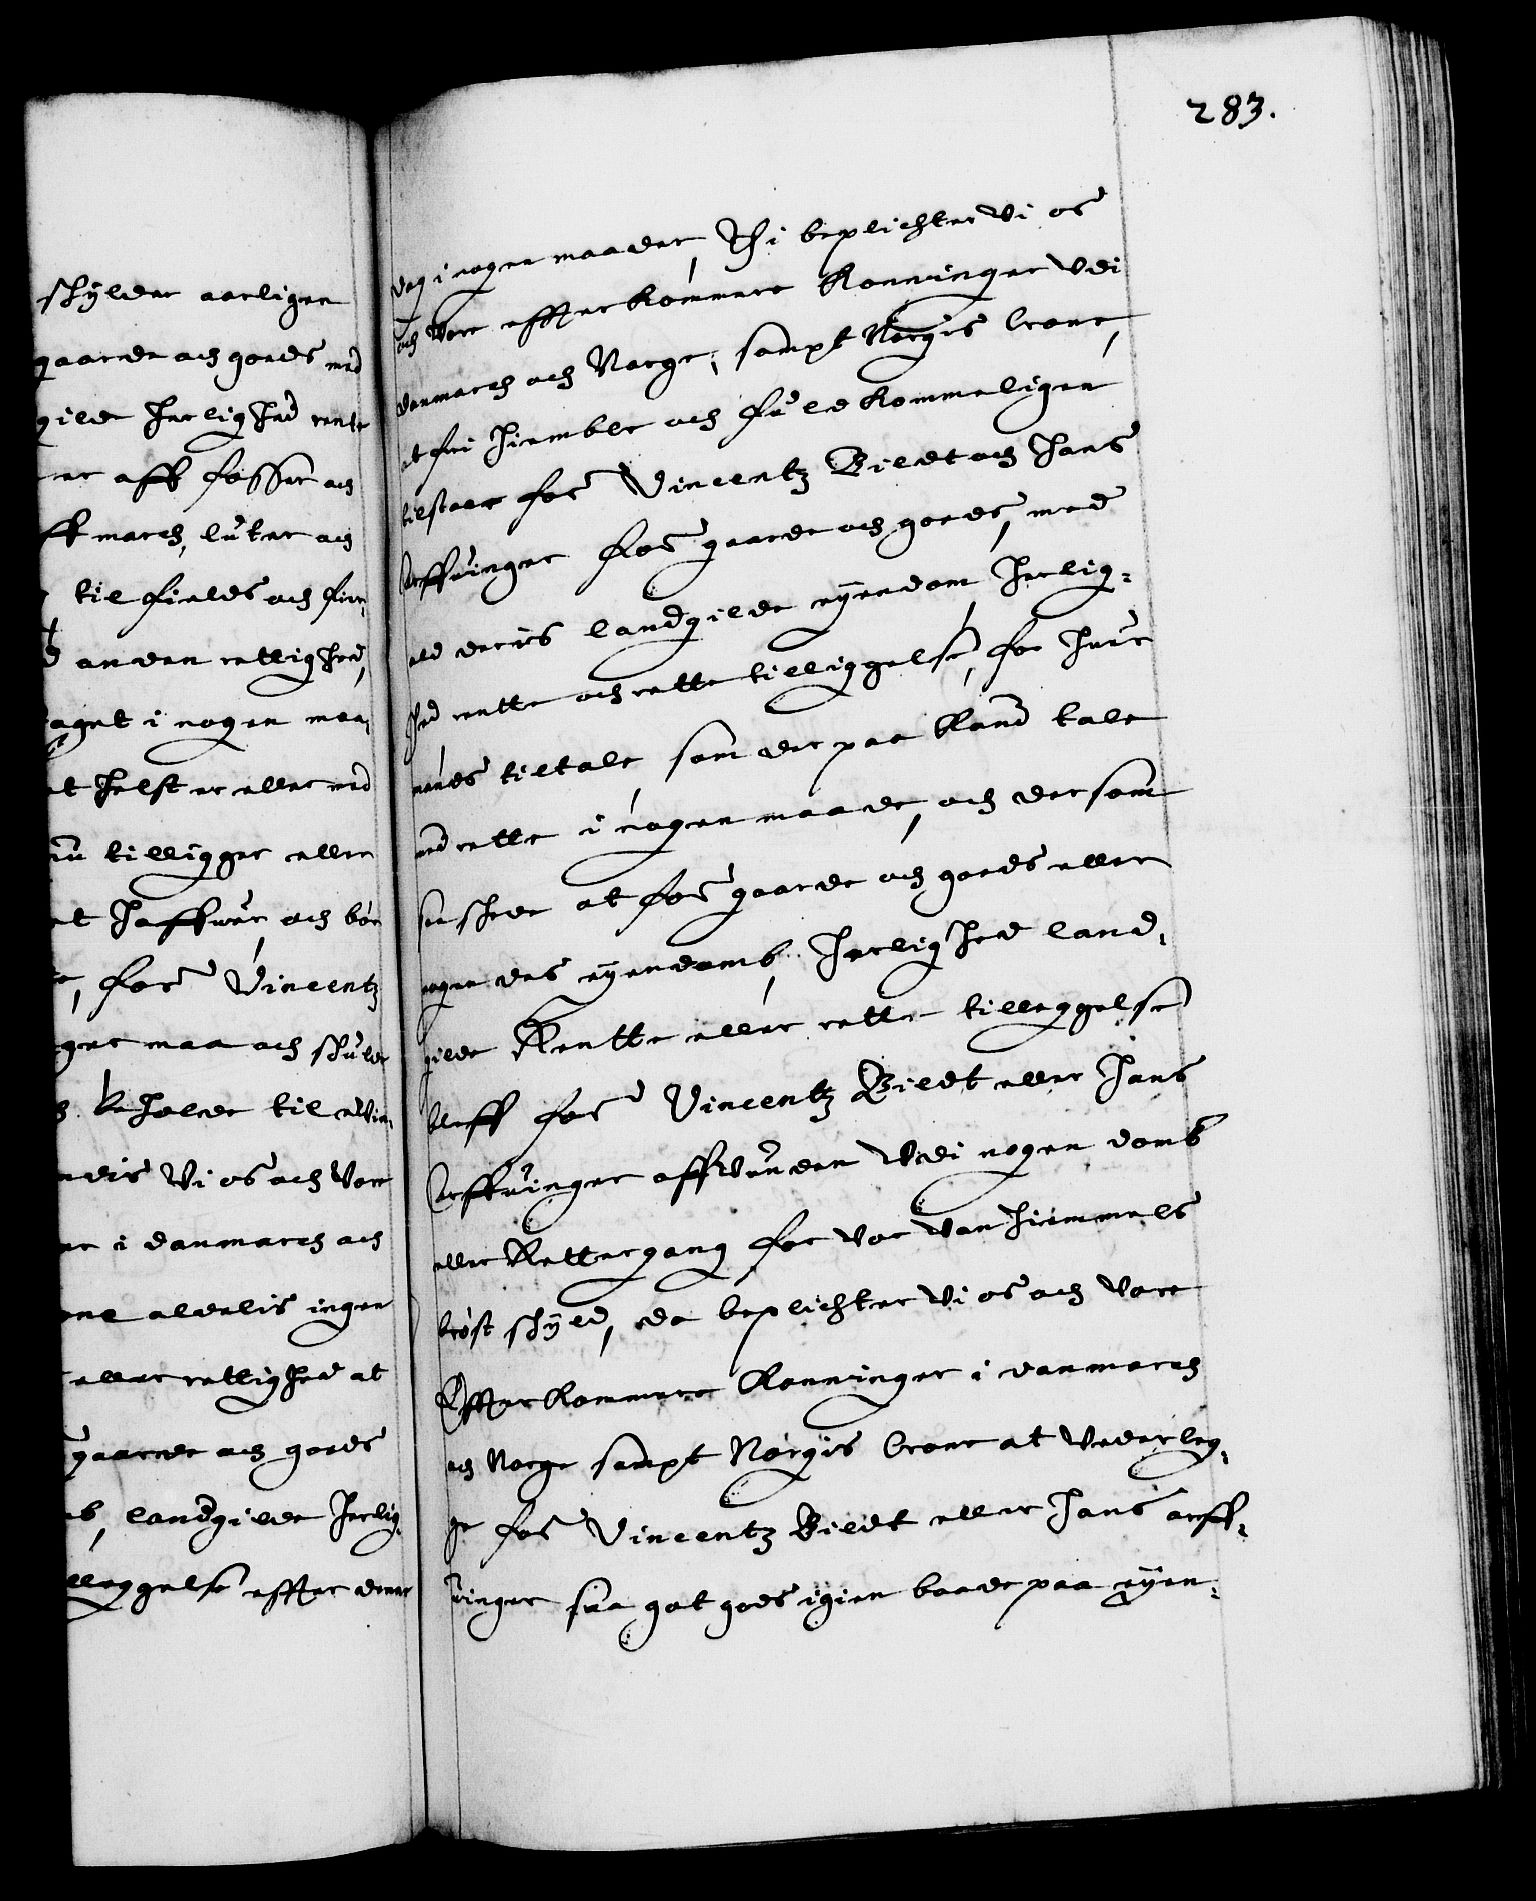 283.
skylder aarligen
gaarde och goeds med
gilde herlighed rente
er aff fosser och
ff march, lutter och
til fields och fier,
anden rettighed,
aget i nogen maa,
et helst er eller med
nu tilligger eller
et haffuer, och bør
, for:ne Vincentz
ger maa och skulle
beholde til euin,
ndis Vi os och Vore
er i danmarch och
one aldelis ingen
eller rettighed at
gaarde och goeds
landgilde herlig,
lleggelse effter denne
dag i nogen maader, Thi beplichter Vi os
och Vore effterkommere Konninger Vdi
danmarch och Norge, sampt Norgis Crone,
at fri hiemble och fuldkommeligen
tilstaar for:ne Vincentz Bildt och hans
Arffuinger for:ne gaarde och goeds, med
ald deris landgilde eyendom herlig,
hed rentte och rette tilliggelse, for huer
mands tiltale, som der paa kand tale
med rette i nogen maade, och der som
saa skede at for:ne gaarde och goeds eller
nogen des eyendomb, herlighed land,
gilde Rentte eller rette tilleggelse
bleff for:ne Vincentz Bildt eller hans
Arffuinger affVunden Vdi nogen domb
eller Rettergang for Vor Vanhiemmels
brøst skyld, da beplichter Vi os och Vore
Effterkommere Konninger i danmarch
och Norge sampt Norgis Crone at Vederleg,
ge for:ne Vincentz Bildt eller hans arff,
uinger saa got gods igien baade paa eyen,